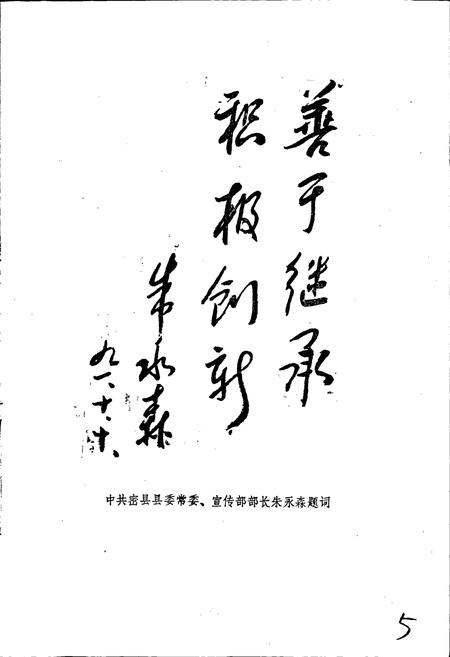 善于继承
积极创新
朱永森
九一、十、十、
中共密县县委常委、宣传部部长朱永森题词
5